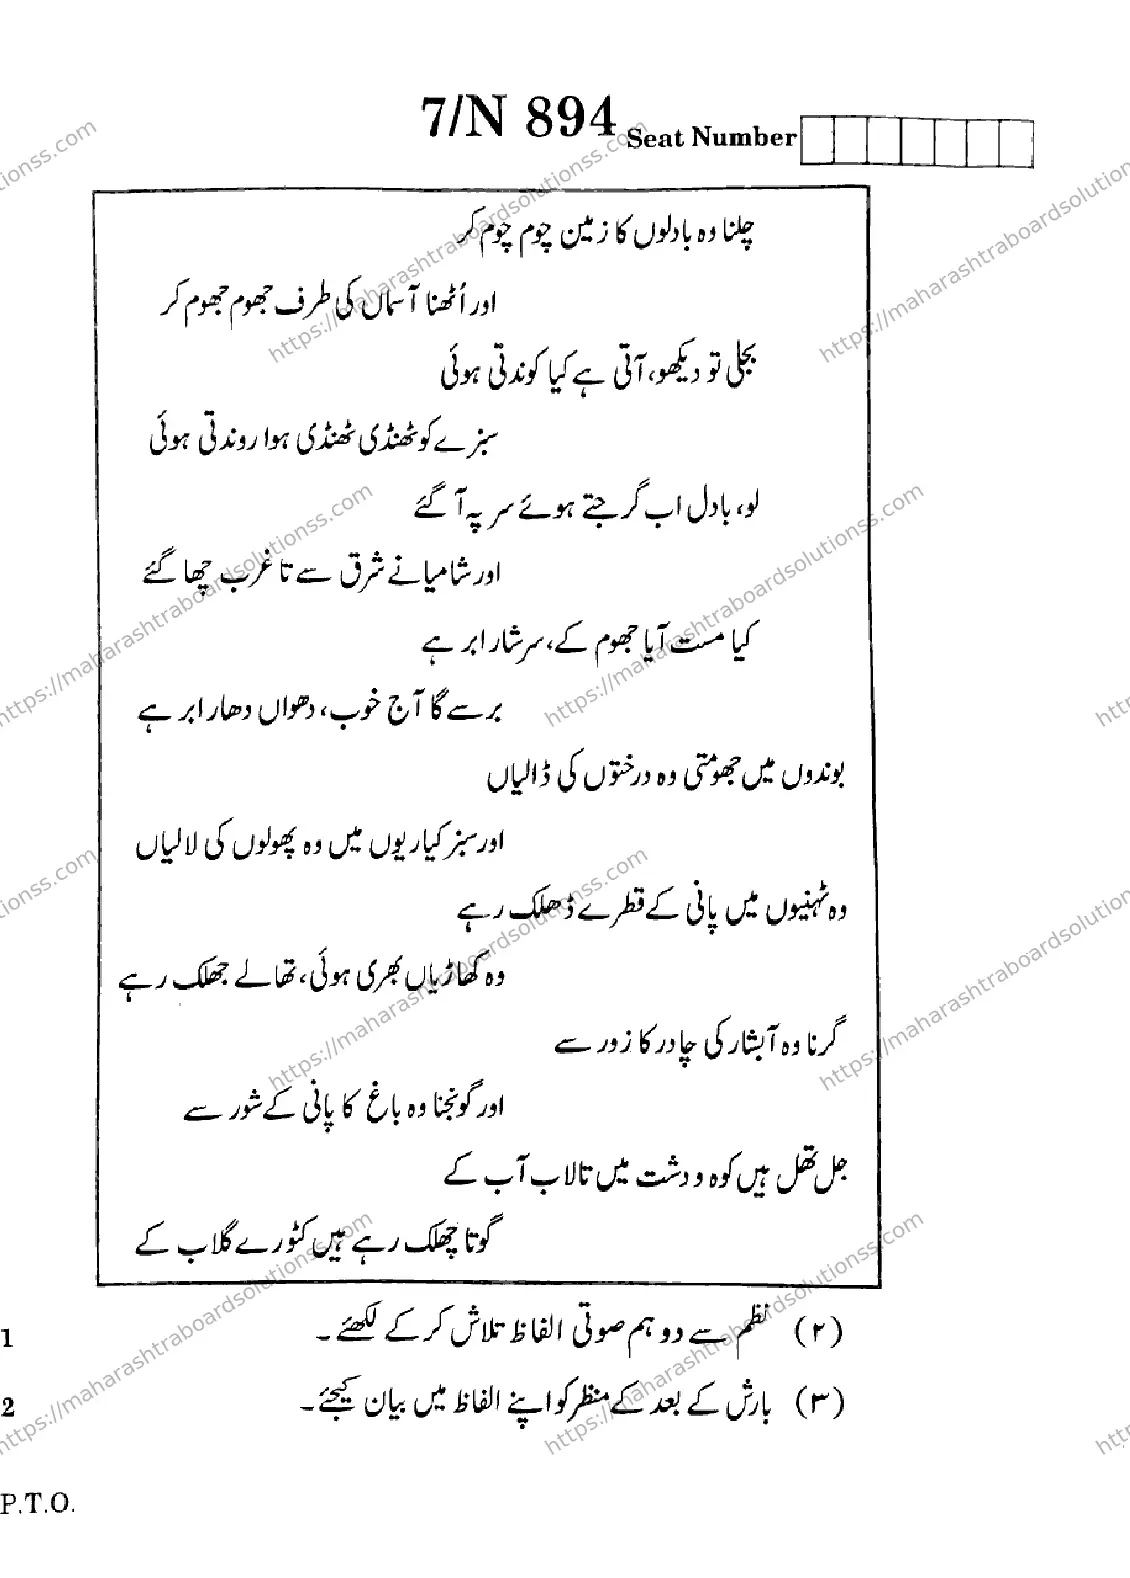 7/N 894
Seat Number
چلنا وہ بادلوں کا زمین چوم چوم کر
اور اُٹھنا آسماں کی طرف جھوم جھوم کر
بجلی تو دیکھو، آتی ہے کیا کوندتی ہوئی
سبزے کو ٹھنڈی ٹھنڈی ہوا روندتی ہوئی
لو، بادل اب گرجتے ہوئے سر پہ آ گئے
اور شامیانے شرق سے تا غرب چھا گئے
کیا مست آیا جھوم کے، سرشار ابر ہے
برسے گا آج خوب، دھواں دھار ابر ہے
بوندوں میں جھومتی وہ درختوں کی ڈالیاں
اور سبز کیاریوں میں وہ پھولوں کی لالیاں
وہ ٹہنیوں میں پانی کے قطرے ڈھلک رہے
وہ کھاڑیاں بھری ہوئی، تھالے جھلک رہے
گرنا وہ آبشار کی چادر کا زور سے
اور گونجنا وہ باغ کا پانی کے شور سے
جل تھل ہیں کوہ و دشت میں تالاب آب کے
گوتا چھلک رہے ہیں کٹورے گلاب کے
(۲) نظم سے دو ہم صوتی الفاظ تلاش کر کے لکھئے۔ 1
(۳) بارش کے بعد کے منظر کو اپنے الفاظ میں بیان کیجئے۔ 2
P.T.O.
https://maharashtraboardsolutionss.com